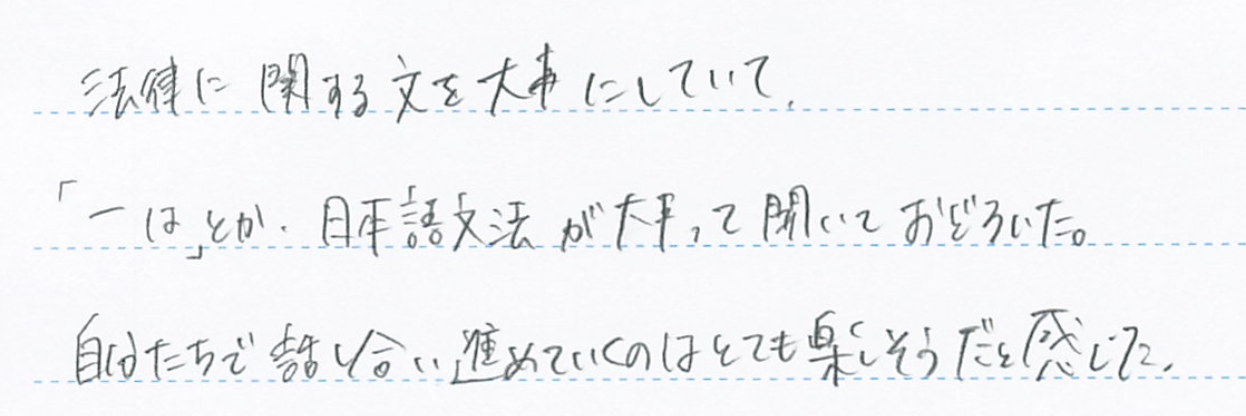 法律に関する文を大事にしていて、
「ーは」とか、日本語文法が大事って聞いておどろいた。
自分たちで話し合い進めていくのはとても楽しそうだと感じた。